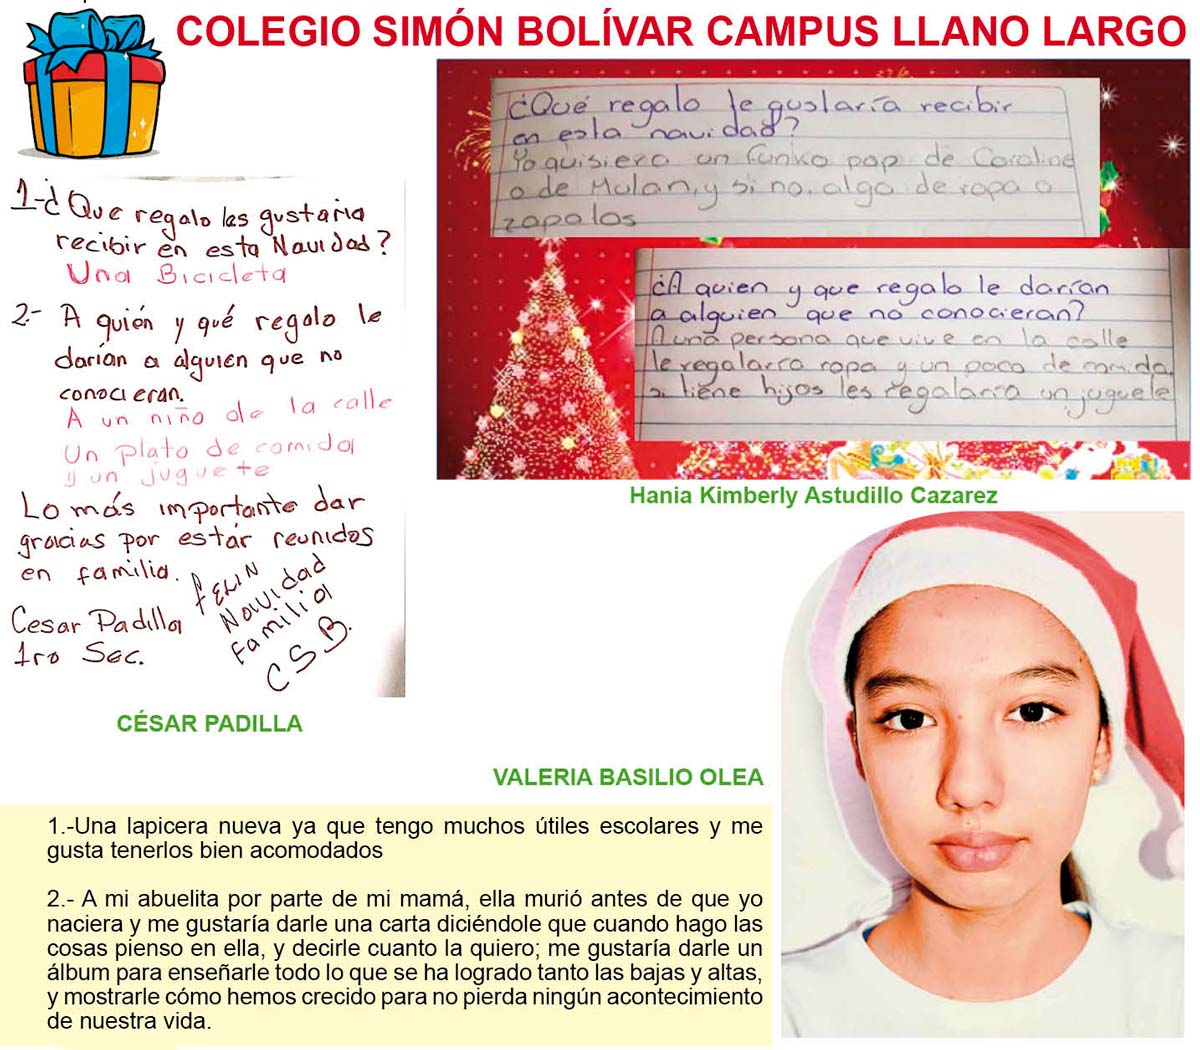 COLEGIO SIMÓN BOLÍVAR CAMPUS LLANO LARGO
1-¿Que regalo les gustaria
recibir en esta Navidad?
Una Bicicleta
2.- A quién y qué regalo le
darían a alguien que no
conocieran.
A un niño de la calle
Un plato de comida
y un juguete
Lo más importante dar
gracias por estar reunidos
en familia.
Cesar Padilla
1ro Sec.
Navidad
familia
CSB.
CÉSAR PADILLA
¿Qué regalo te gustaría recibir
en esta navidad?
Yo quisiera un funko pop de Coraline
o de Mulan, y si no, algo de ropa o
zapatos
¿A quien y que regalo le darían
a alguien que no conocieran?
A una persona que vive en la calle
le regalaría ropa y un poco de comida,
si tiene hijos les regalaría un juguete
Hania Kimberly Astudillo Cazarez
VALERIA BASILIO OLEA
1.-Una lapicera nueva ya que tengo muchos útiles escolares y me
gusta tenerlos bien acomodados
2.- A mi abuelita por parte de mi mamá, ella murió antes de que yo
naciera y me gustaría darle una carta diciéndole que cuando hago las
cosas pienso en ella, y decirle cuanto la quiero; me gustaría darle un
álbum para enseñarle todo lo que se ha logrado tanto las bajas y altas,
y mostrarle cómo hemos crecido para no pierda ningún acontecimiento
de nuestra vida.